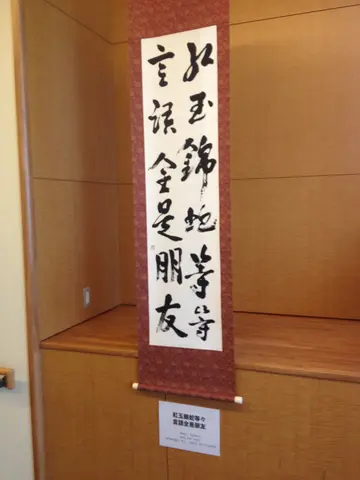 紅玉錦蛇等等
言語全是朋友
紅玉錦蛇等々
言語全是朋友